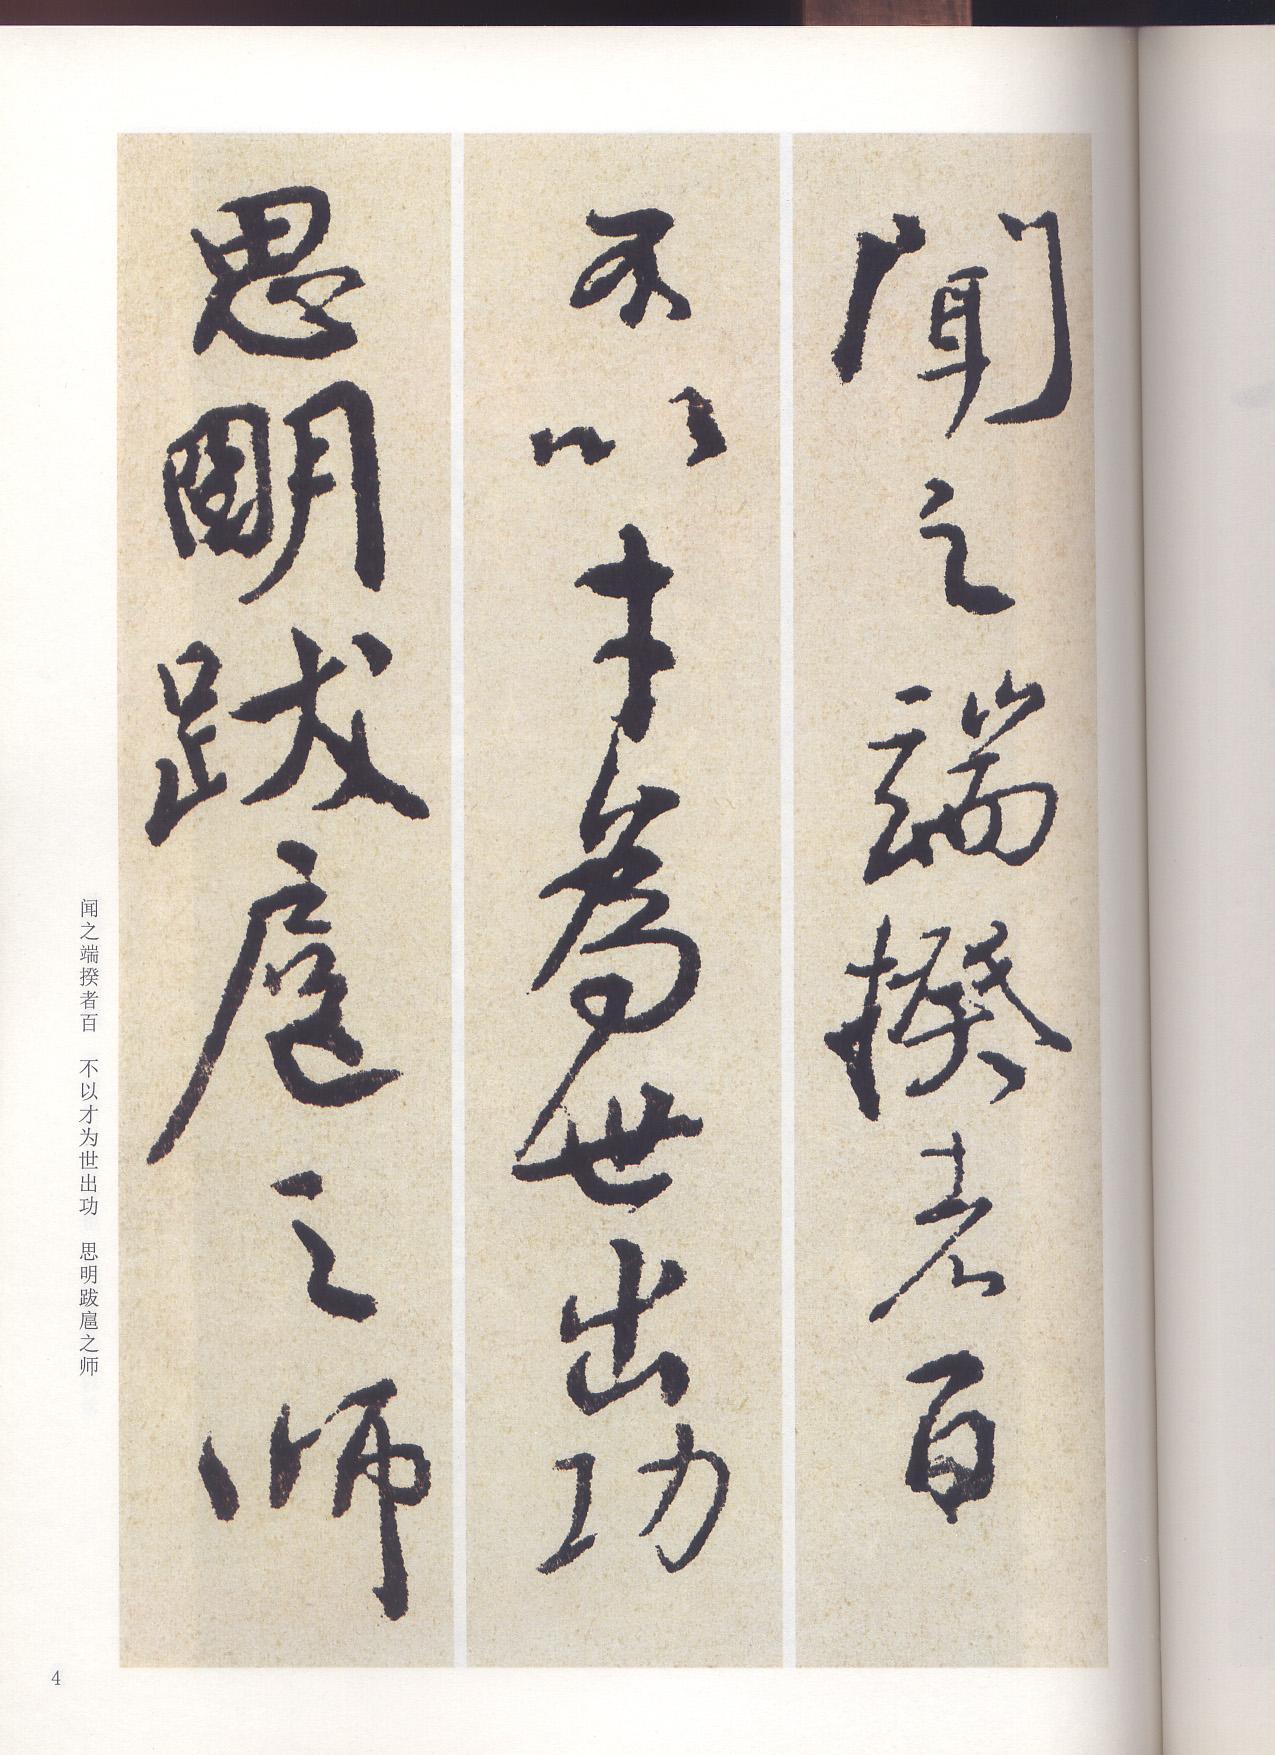 聞之端揆者百
不以才為世出功
思明跋扈之師
闻之端揆者百 不以才为世出功 思明跋扈之师
4